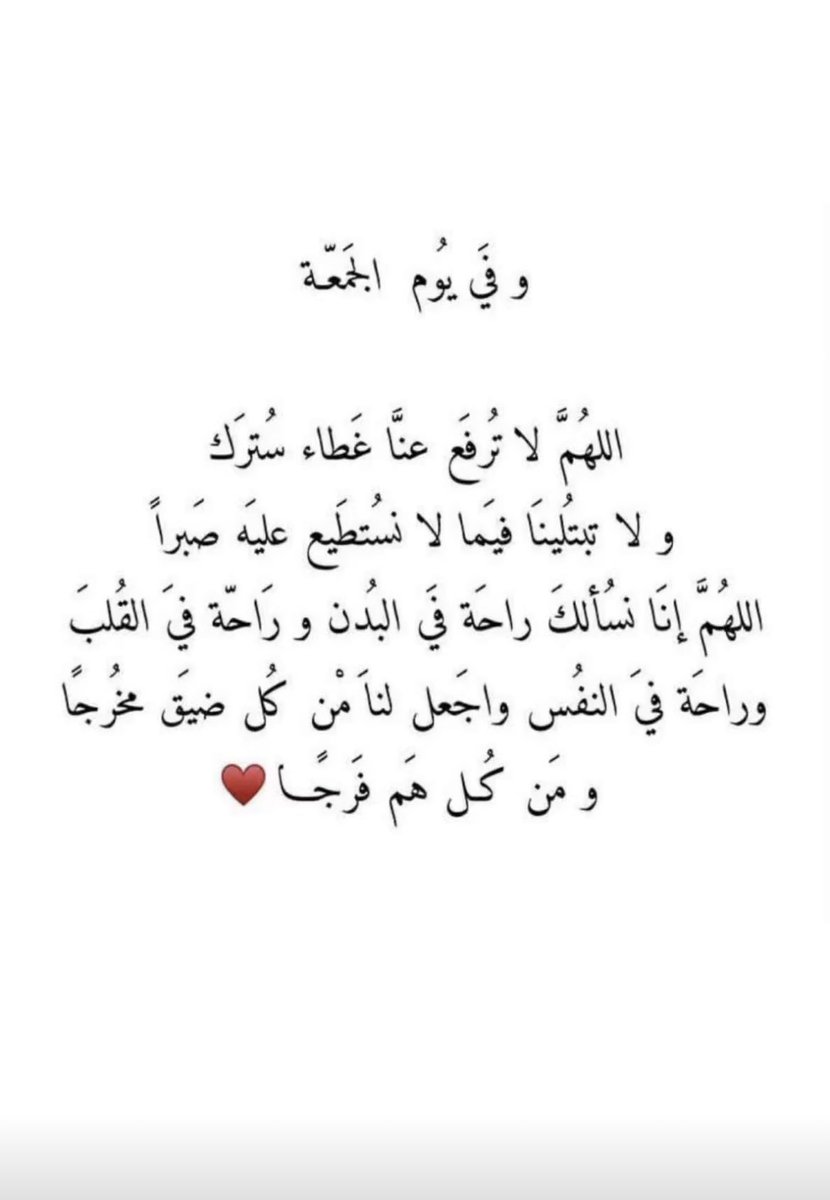 و فَي يُوم الجَمَعّة
اللهُمَّ لا تُرفَع عنَّا غَطاء سُترَك
و لا تبتُلينَا فيَما لا نسُتطَيع عليَه صَبراً
اللهُمَّ إنَا نسُألكَ راحَة فَي البُدن و رَاحّة فيَ القُلبَ
وراحَة فيَ النفُس واجَعل لناَ مْن كُل ضيَق مخُرجًا
و مَن كُـل هَم فَرَجًـا ♥️